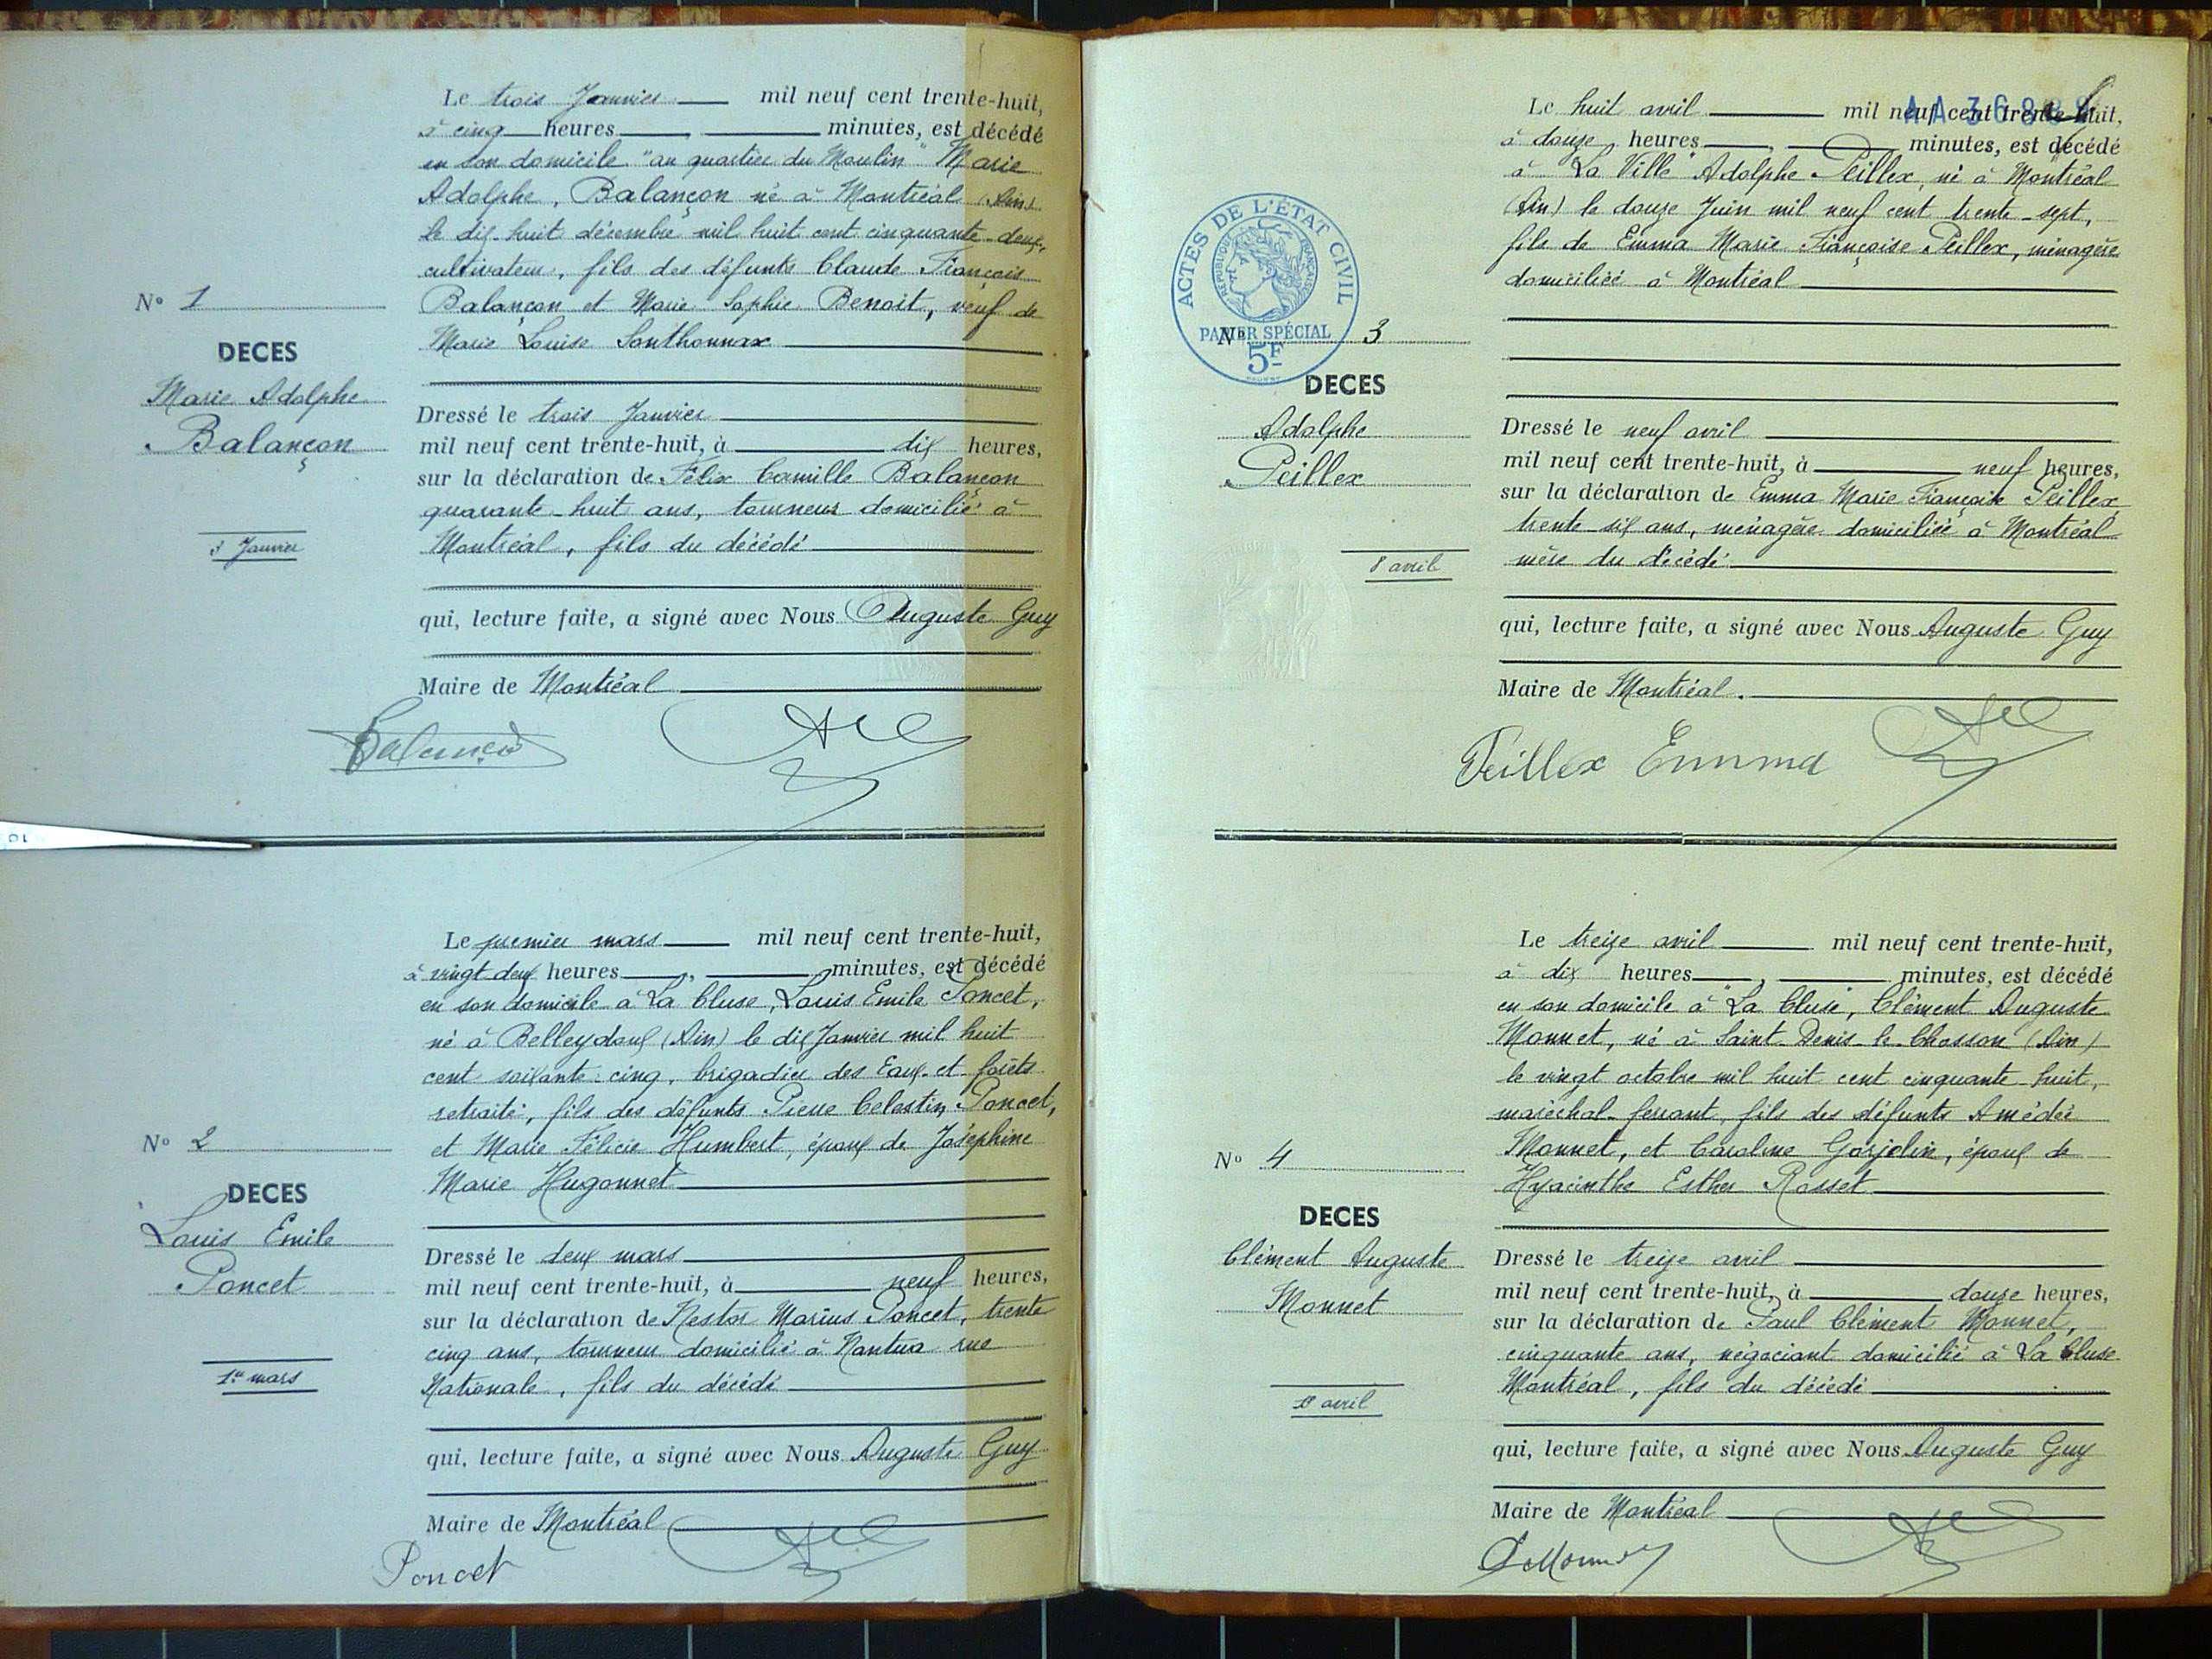 Le trois Janvier mil neuf cent trente-huit,
à cinq heures, minutes, est décédé
en son domicile "au quartier du Moulin" Marie
Adolphe, Balançon né à Montréal (Ain)
le dix-huit décembre mil huit cent cinquante-deux,
cultivateur, fils des défunts Claude François
Balançon et Marie Sophie Benoit, veuf de
Marie Louise Sonthonnax
N° 1
DECES
Marie Adolphe
Balançon
3 Janvier
Dressé le trois Janvier
mil neuf cent trente-huit, à dix heures,
sur la déclaration de Félix Camille Balançon
quarante-huit ans, tourneur domicilié à
Montréal, fils du décédé
qui, lecture faite, a signé avec Nous Auguste Guy
Maire de Montréal
Balançon
Le premier mars mil neuf cent trente-huit,
à vingt deux heures, minutes, est décédé
en son domicile à La Cluse, Louis Emile Poncet,
né à Belleydoux (Ain) le dix Janvier mil huit
cent soixante-cinq, brigadier des Eaux-et-forêts
retraité, fils des défunts Pierre Celestin Poncet,
et Marie Félicie Humbert, époux de Joséphine
Marie Hugonnet
N° 2
DECES
Louis Emile
Poncet
1er mars
Dressé le deux mars
mil neuf cent trente-huit, à neuf heures,
sur la déclaration de Nestor Marius Poncet, trente
cinq ans, tourneur domicilié à Nantua rue
Nationale, fils du décédé
qui, lecture faite, a signé avec Nous Auguste Guy
Maire de Montréal
Poncet
Le huit avril mil neuf cent trente-huit,
à douze, heures, minutes, est décédé
à "La Ville" Adolphe Peillex, né à Montréal
(Ain) le douze Juin mil neuf cent trente-sept,
fils de Emma Marie Françoise Peillex, ménagère
domiciliée à Montréal
ACTES DE L'ÉTAT CIVIL
RÉPUBLIQUE FRANÇAISE
PAPIER SPÉCIAL
5F
N° 3
DECES
Adolphe
Peillex
8 avril
Dressé le neuf avril
mil neuf cent trente-huit, à neuf heures,
sur la déclaration de Emma Marie Françoise Peillex
trente six ans, ménagère domiciliée à Montréal
mère du décédé
qui, lecture faite, a signé avec Nous Auguste Guy
Maire de Montréal.
Peillex Emma
Le treize avril mil neuf cent trente-huit,
à dix heures, minutes, est décédé
en son domicile à "La Cluse", Clément Auguste
Monnet, né à Saint-Denis-le-Chosson (Ain)
le vingt octobre mil huit cent cinquante-huit,
maréchal-ferrant, fils des défunts Amédée
Monnet, et Caroline Gorjolin, époux de
Hyacinthe Esther Rosset
N° 4
DECES
Clément Auguste
Monnet
avril
Dressé le treize avril
mil neuf cent trente-huit, à douze heures,
sur la déclaration de Paul Clément Monnet,
cinquante ans, négociant domicilié à La Cluse
Montréal, fils du décédé
qui, lecture faite, a signé avec Nous Auguste Guy
Maire de Montréal